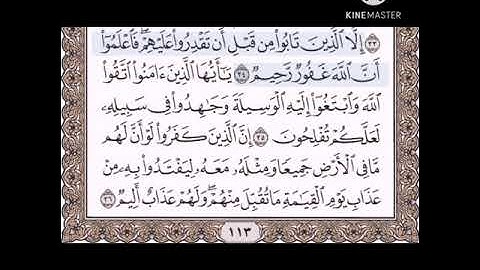 MADE WITH
KINEMASTER
٣٣ إِلَّا ٱلَّذِينَ تَابُوا۟ مِن قَبْلِ أَن تَقْدِرُوا۟ عَلَيْهِمْ ۖ فَٱعْلَمُوٓا۟
أَنَّ ٱللَّهَ غَفُورٌ رَّحِيمٌ ٣٤ يَـٰٓأَيُّهَا ٱلَّذِينَ ءَامَنُوا۟ ٱتَّقُوا۟
ٱللَّهَ وَٱبْتَغُوٓا۟ إِلَيْهِ ٱلْوَسِيلَةَ وَجَـٰهِدُوا۟ فِى سَبِيلِهِۦ
لَعَلَّكُمْ تُفْلِحُونَ ٣٥ إِنَّ ٱلَّذِينَ كَفَرُوا۟ لَوْ أَنَّ لَهُم
مَّا فِى ٱلْأَرْضِ جَمِيعًا وَمِثْلَهُۥ مَعَهُۥ لِيَفْتَدُوا۟ بِهِۦ مِنْ
عَذَابِ يَوْمِ ٱلْقِيَـٰمَةِ مَا تُقُبِّلَ مِنْهُمْ ۖ وَلَهُمْ عَذَابٌ أَلِيمٌ ٣٦
١١٣